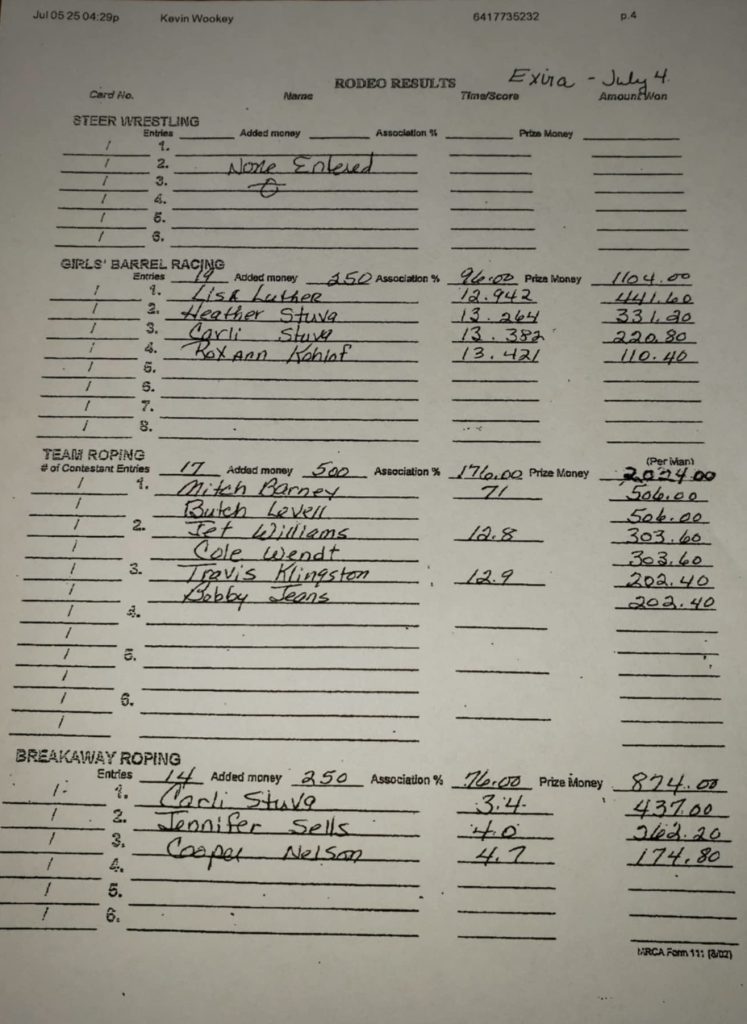 Jul 05 25 04:29p Kevin Wookey 6417735232 p.4
RODEO RESULTS Exira - July 4
Card No. Name Time/Score Amount Won
STEER WRESTLING
Entries Added money Association % Prize Money
/ 1.
/ 2. None Entered
/ 3.
/ 4.
/ 5.
/ 6.
GIRLS' BARREL RACING
Entries 19 Added money 250 Association % 96.00 Prize Money 1104.00
/ 1. Lisa Luther 12.942 441.60
/ 2. Heather Stuva 13.264 331.20
/ 3. Carli Stuva 13.382 220.80
/ 4. Rox Ann Kohlof 13.421 110.40
/ 5.
/ 6.
/ 7.
/ 8.
TEAM ROPING (Per Man)
# of Contestant Entries 17 Added money 500 Association % 176.00 Prize Money 2024.00
/ 1. Mitch Barney 71 506.00
/ Butch Levell 506.00
/ 2. Jet Williams 12.8 303.60
/ Cole Wendt 303.60
/ 3. Travis Klingston 12.9 202.40
/ Bobby Jeans 202.40
/ 4.
/
/ 5.
/
/ 6.
/
BREAKAWAY ROPING
Entries 14 Added money 250 Association % 76.00 Prize Money 874.00
/ 1. Carli Stuva 3.4 437.00
/ 2. Jennifer Sells 4.0 262.20
/ 3. Cooper Nelson 4.7 174.80
/ 4.
/ 5.
/ 6.
MRCA Form 111 (8/02)